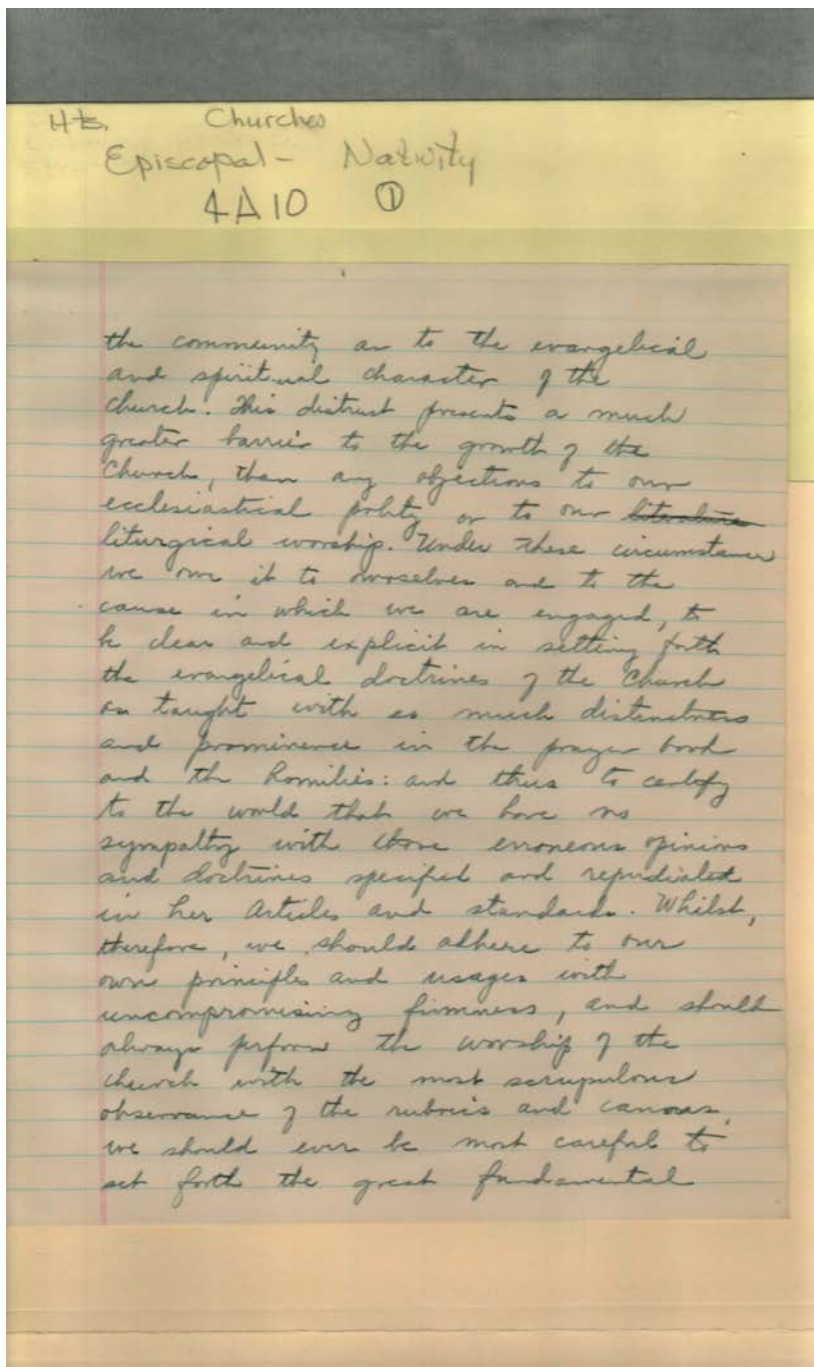 Hts. Churches
Episcopal - Nativity
4A10 ①
the community as to the evangelical
and spiritual character of the
church. This distrust presents a much
greater barrier to the growth of the
Church, than any objections to our
ecclesiastical polity or to our literature
liturgical worship. Under these circumstances
we owe it to ourselves and to the
cause in which we are engaged, to
be clear and explicit in setting forth
the evangelical doctrines of the Church
as taught with so much distinctness
and prominence in the prayer book
and the homilies: and thus to certify
to the world that we have no
sympathy with those erroneous opinions
and doctrines specified and repudiated
in her Articles and standards. Whilst,
therefore, we should adhere to our
own principles and usages with
uncompromising firmness, and should
always perform the worship of the
church with the most scrupulous
observance of the rubrics and canons,
we should ever be most careful to
set forth the great fundamental